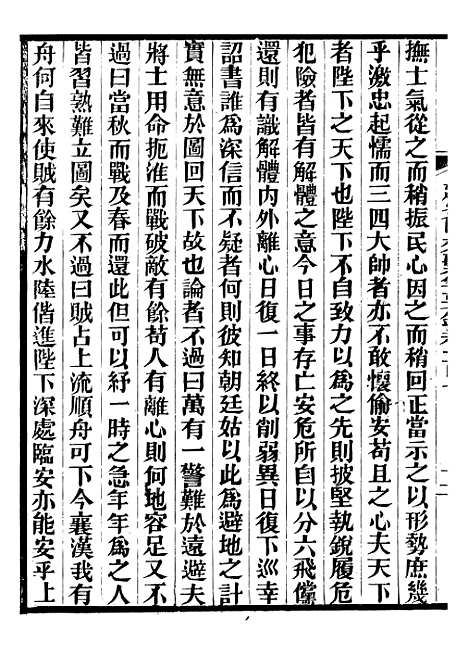 撫士氣從之而稍振民心因之而稍回正當示之以形勢庶幾
乎激忠起懦而三四大帥者亦不敢懷偷安苟且之心夫天下
者陛下之天下也陛下不自致力以為之先則披堅執銳履危
犯險者皆有解體之意今日之事存亡安危所自以分六飛儻
還則有識解體內外離心日復一日終以削弱異日復下巡幸
詔書誰為深信而不疑者何則彼知朝廷姑以此為避地之計
實無意於圖回天下故也論者不過曰萬有一警難於遠避夫
將士用命扼淮而戰破敵有餘苟人有離心則何地容足又不
過曰當秋而戰及春而還此但可以紓一時之急年年為之人
皆習熟難立圖矣又不過曰賊占上流順舟可下今襄漢我有
舟何自來使賊有餘力水陸偕進陛下深處臨安亦能安乎上